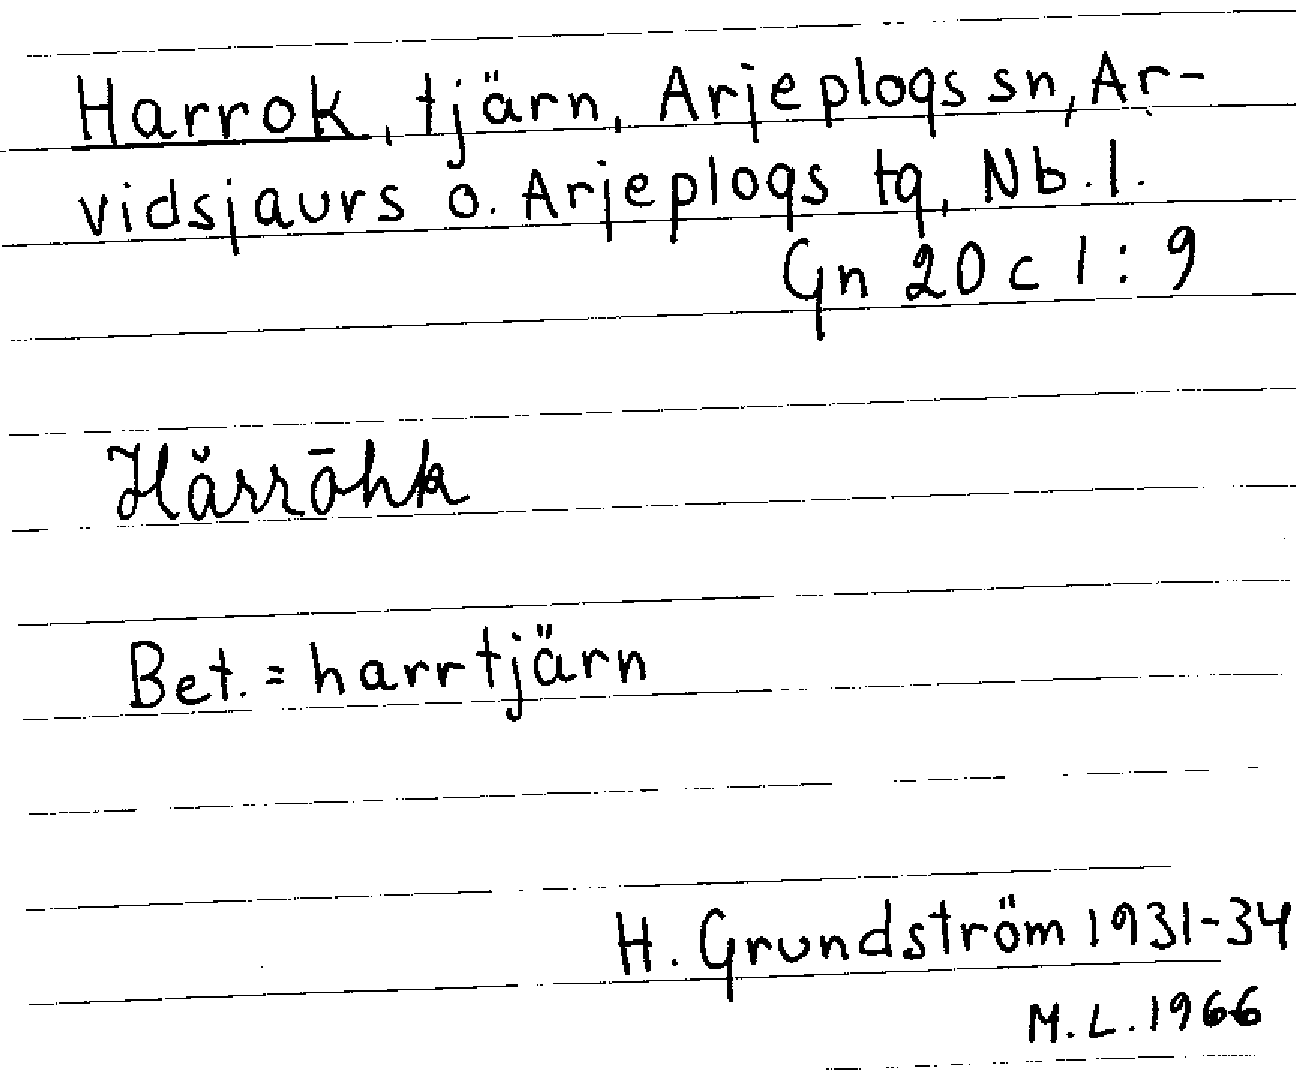 Harrok, tjärn, Arjeplogs sn, Ar-
vidsjaurs o. Arjeplogs tg, Nb.l.
Gn 20 c 1 : 9
Hărrōhk
Bet. = harrtjärn
H. Grundström 1931-34
M.L. 1966